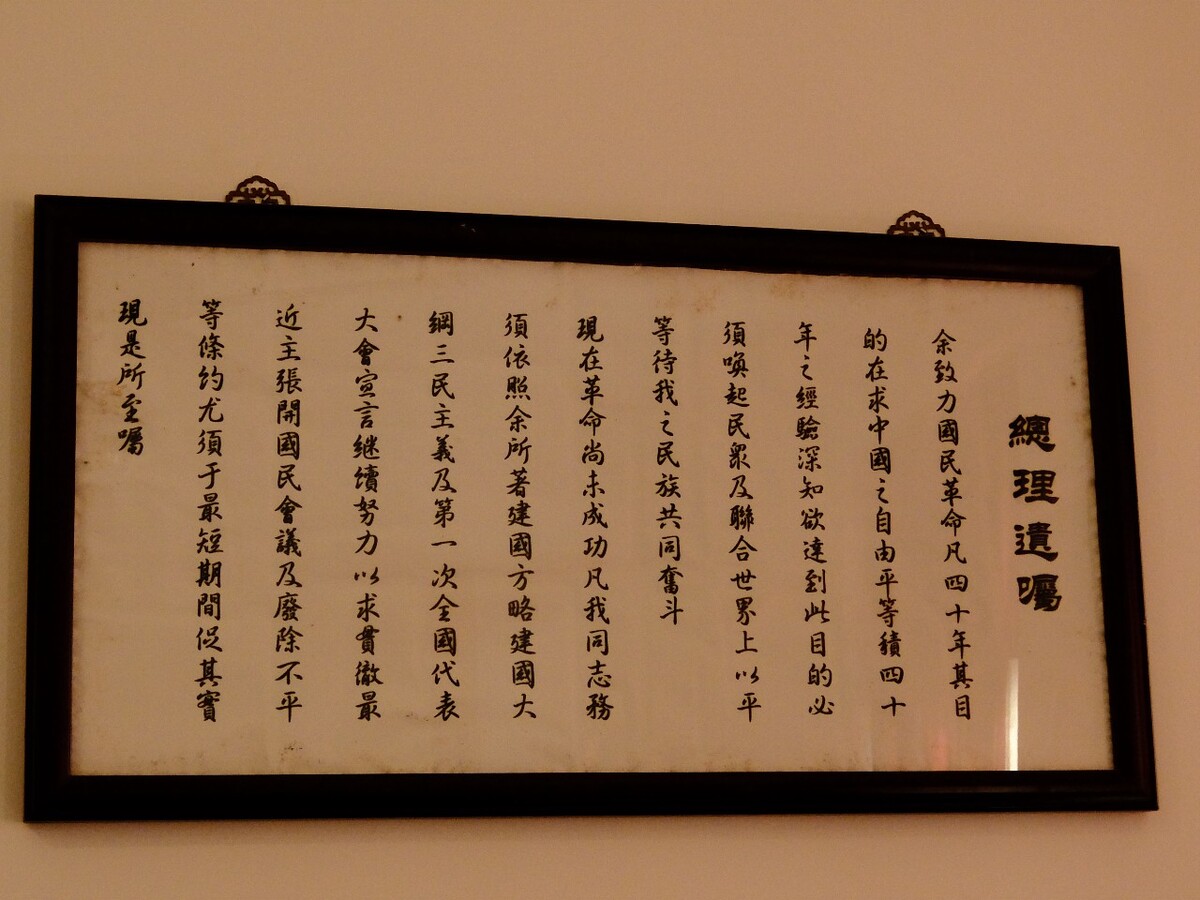 總理遺囑
余致力國民革命凡四十年其目
的在求中國之自由平等積四十
年之經驗深知欲達到此目的必
須喚起民眾及聯合世界上以平
等待我之民族共同奮斗
現在革命尚未成功凡我同志務
須依照余所著建國方略建國大
綱三民主義及第一次全國代表
大會宣言继續努力以求貫徹最
近主張開國民會議及廢除不平
等條約尤須于最短期間促其實
現是所至囑